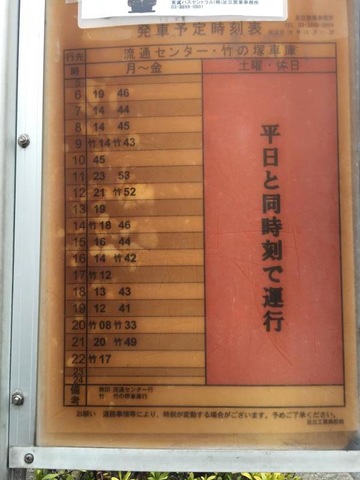 東武バスセントラル(株)足立営業事務所
発車予定時刻表
行先 流通センター・竹の塚車庫
時 月～金 土曜・休日
5
6 19 46
7 14 44
8 14 45
9 竹14 竹43
10 45
11 23 53
12 21 竹52
13 19
14 竹18 46
15 16 44
16 14 竹42
17 竹12
18 13 43
19 12 41
20 竹08 竹33
21 20 竹49
22 竹17
23
24
平日と同時刻で運行
備考 無印 流通センター行
竹 竹の塚車庫行
お願い 道路事情等により、時刻が変動する場合がございます。予めご了承ください。